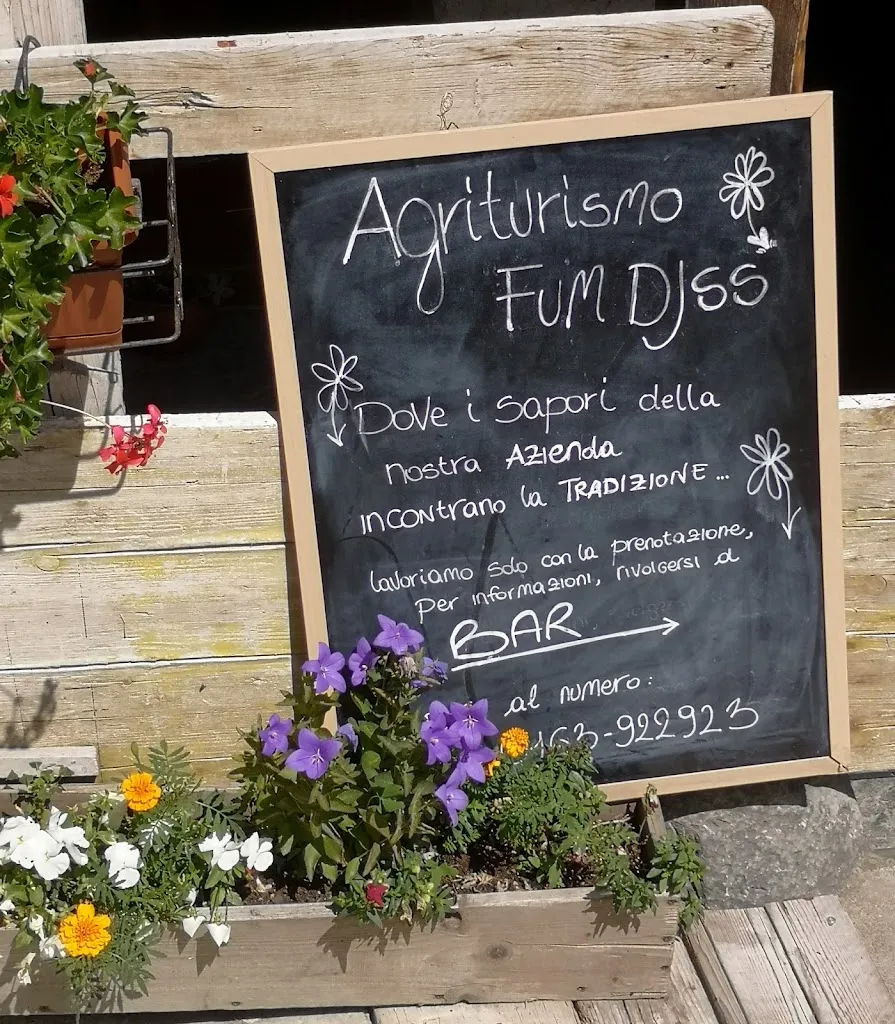 Agriturismo
FUM DJSS
Dove i sapori della
nostra Azienda
incontrano la TRADIZIONE...
lavoriamo solo con la prenotazione,
Per informazioni, rivolgersi al
BAR
al numero:
163-922923